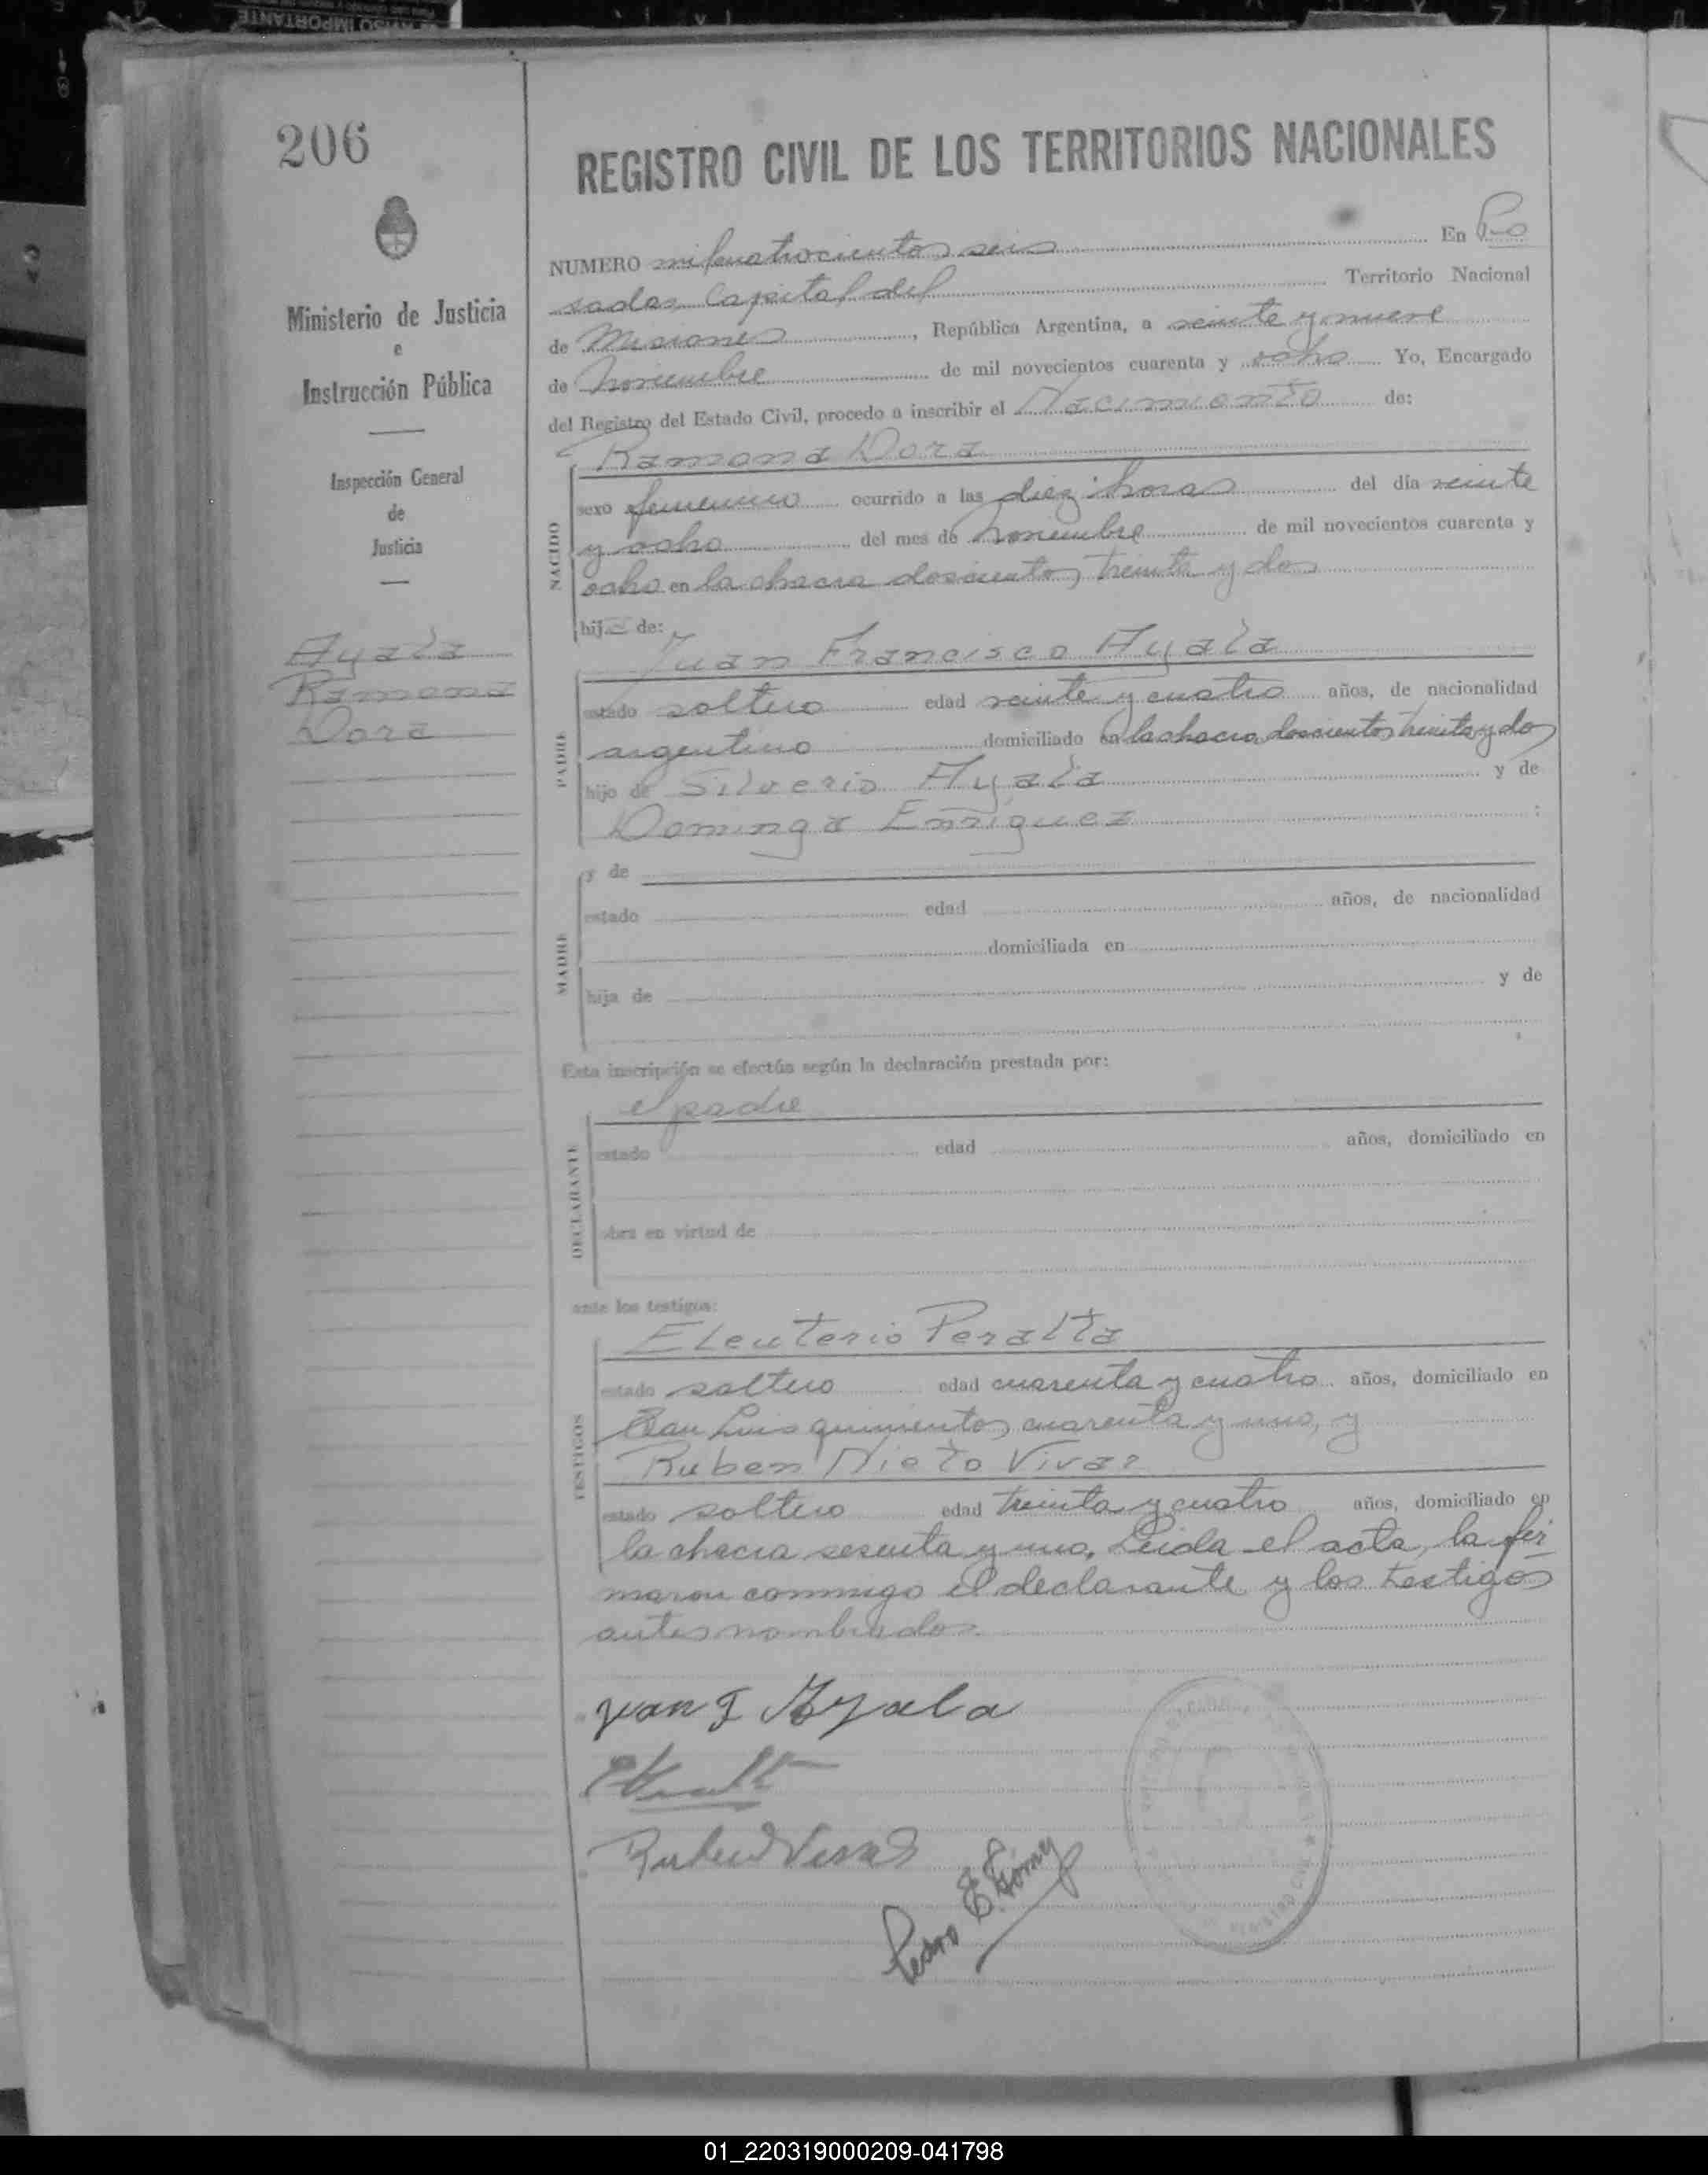 206
REGISTRO CIVIL DE LOS TERRITORIOS NACIONALES
NUMERO mil cuatrocientos seis En Po
sadas, Capital del Territorio Nacional
de Misiones, República Argentina, a veinte y nueve
de noviembre de mil novecientos cuarenta y ocho Yo, Encargado
del Registro del Estado Civil, procedo a inscribir el Nacimiento de:
Ramona Dora
sexo femenino ocurrido a las diez horas del día veinte
y ocho del mes de noviembre de mil novecientos cuarenta y
ocho en la chacra doscientos treinta y dos
hija de:
NACIDO
Juan Francisco Ayala
estado soltero edad veinte y cuatro años, de nacionalidad
argentino domiciliado en la chacra doscientos treinta y dos
hijo de Silverio Ayala y de
Dominga Enriquez
PADRE
y de
estado edad años, de nacionalidad
domiciliada en
hija de y de
MADRE
Esta inscripción se efectúa según la declaración prestada por:
el padre
estado edad años, domiciliado en
obra en virtud de
DECLARANTE
ante los testigos:
Eleuterio Peralta
estado soltero edad cuarenta y cuatro años, domiciliado en
San Luis quinientos cuarenta y uno, y
Ruben Nieto Vivar
estado soltero edad treinta y cuatro años, domiciliado en
la chacra sesenta y uno. Leida el acta, la fir
maron conmigo el declarante y los testigos
antes nombrados.
TESTIGOS
Juan F Ayala
Pedro E. Gómez
Ministerio de Justicia
e
Instrucción Pública
Inspección General
de
Justicia
Ayala
Ramona
Dora
01_220319000209-041798